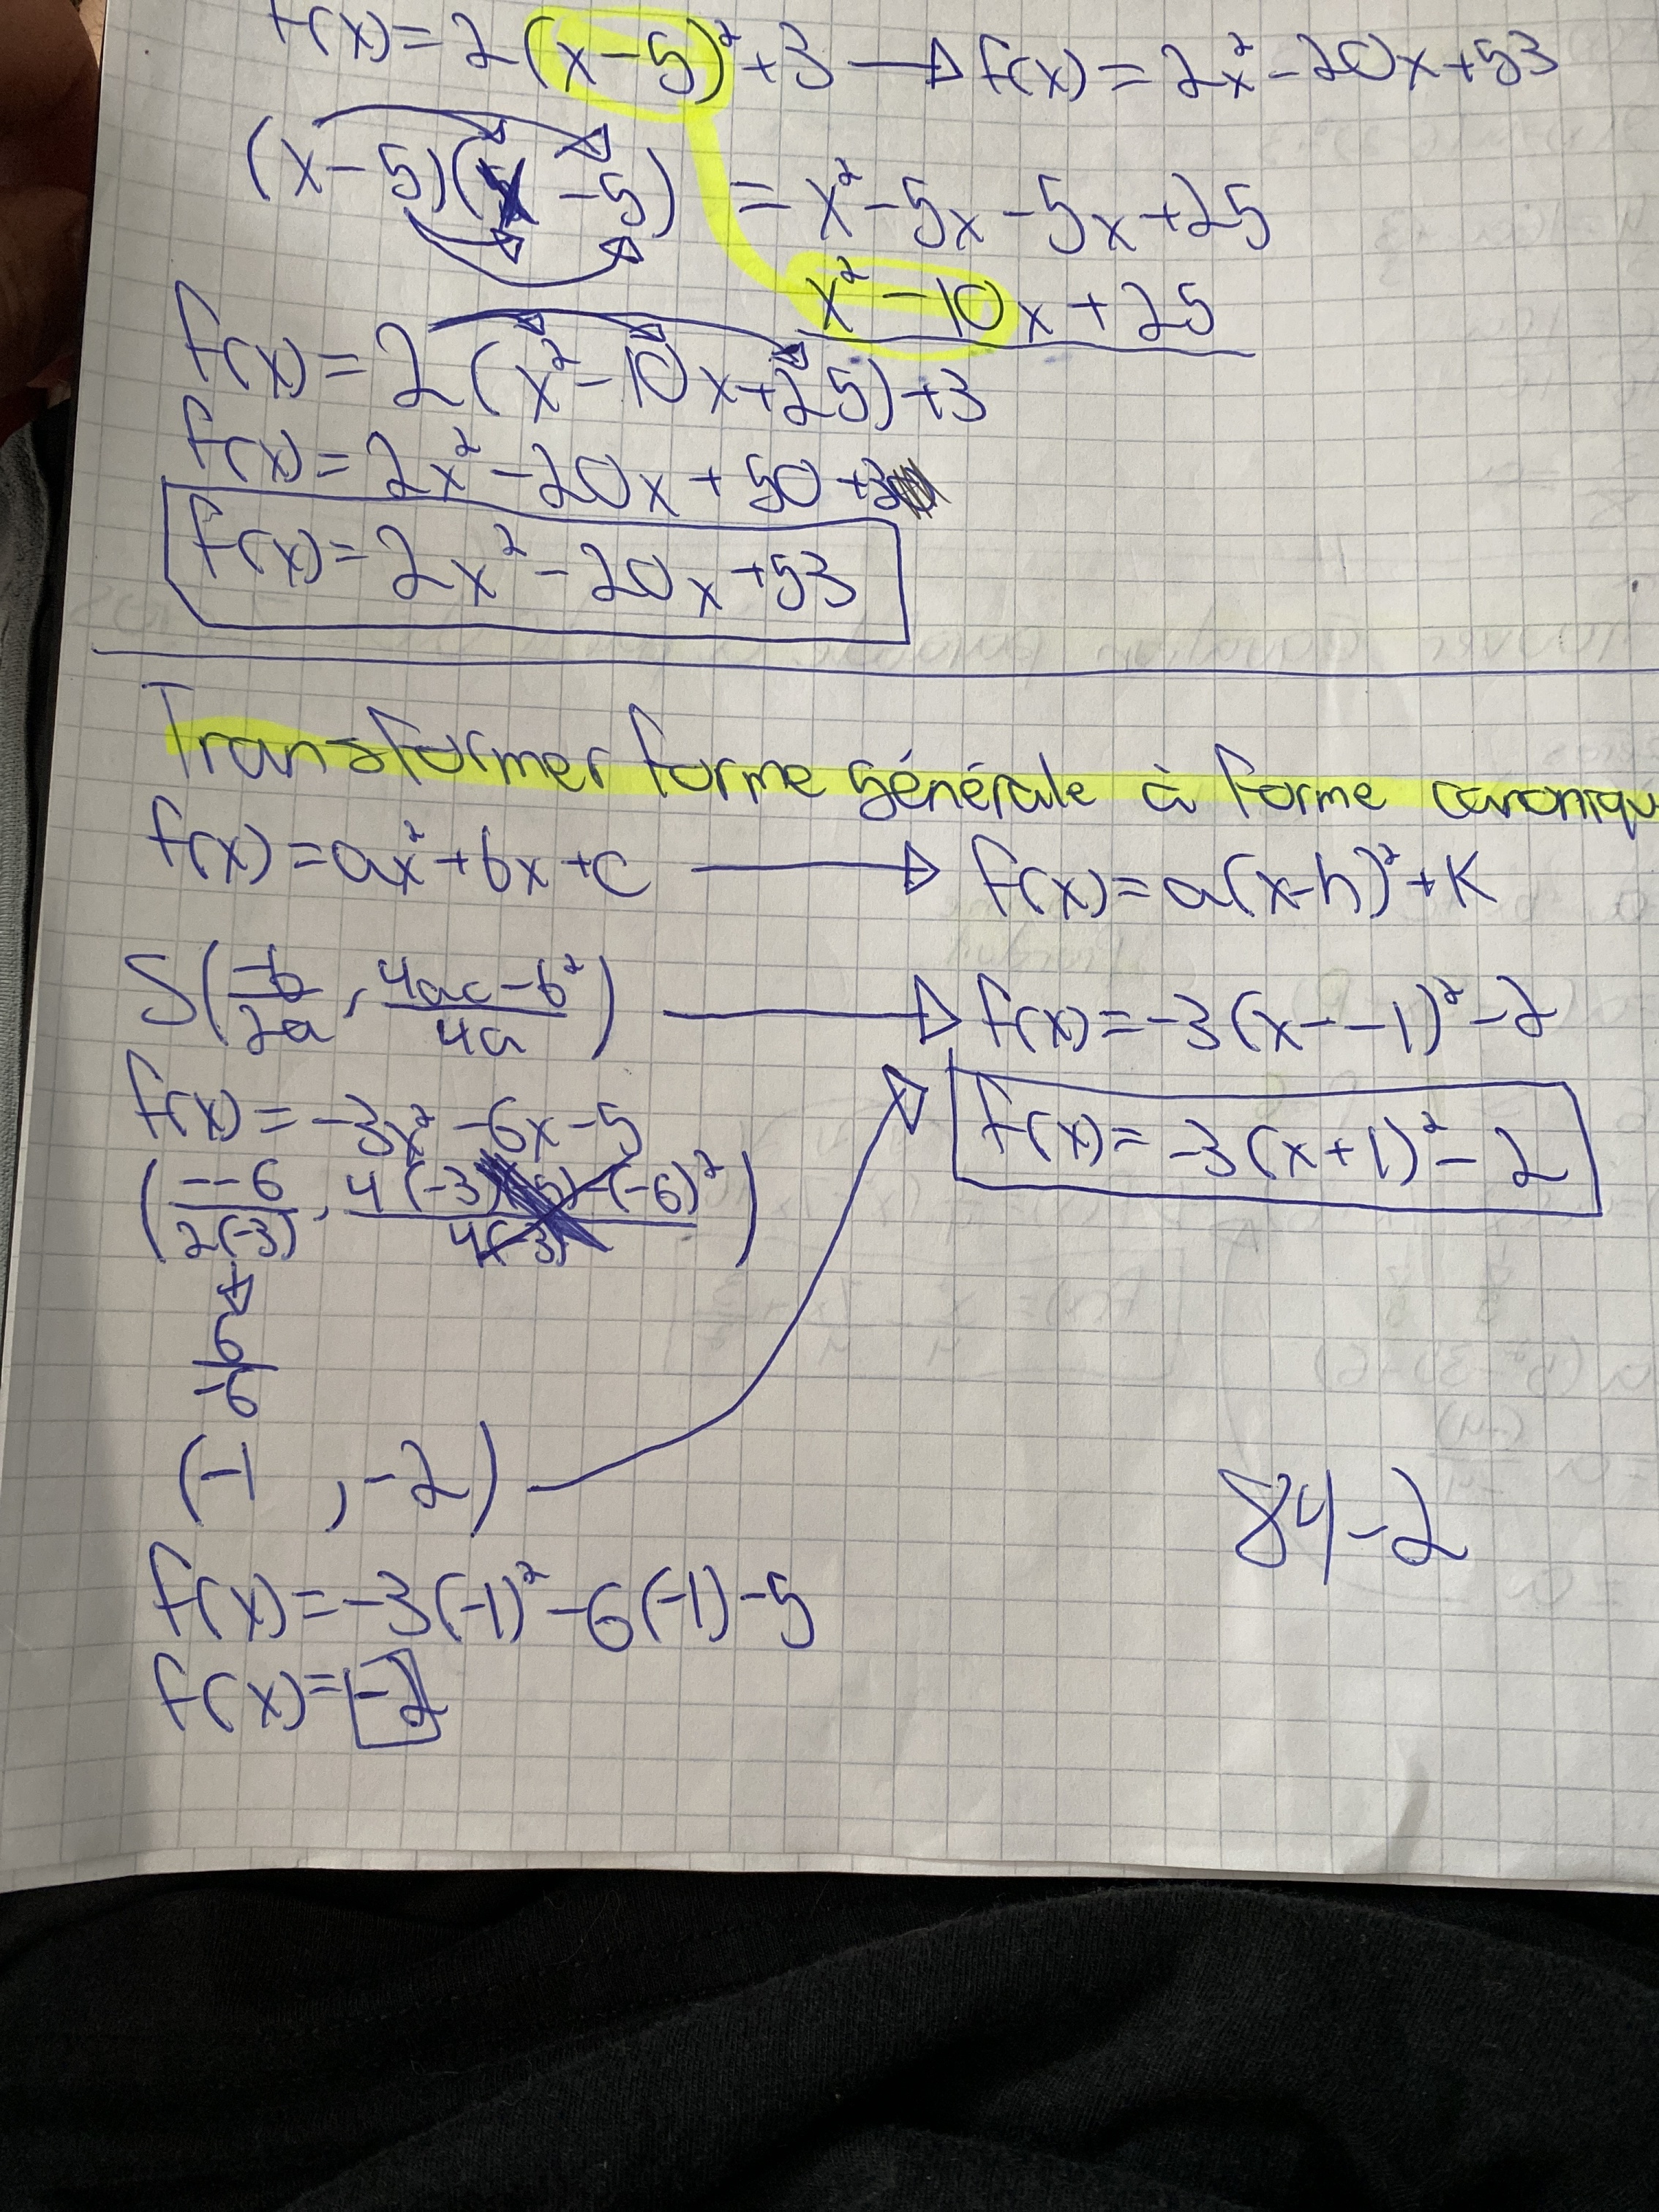 f(x)=2(x-5)²+3 → f(x)=2x²-20x+53
(x-5)(x-5) = x²-5x-5x+25
x²-10x+25
f(x)=2(x²-10x+25)+3
f(x)=2x²-20x+50+3
f(x)=2x²-20x+53
Transformer forme générale à forme canoniqu
f(x)=ax²+bx+c → f(x)=a(x-h)²+K
S(-b/2a, 4ac-b²/4a) → f(x)=-3(x--1)²-2
f(x)=-3x²-6x-5
f(x)=-3(x+1)²-2
(--6/2(-3), 4(-3)(-5)-(-6)²/4(-3))
6/-6
(-1, -2)
84-2
f(x)=-3(-1)²-6(-1)-5
f(x)=-2